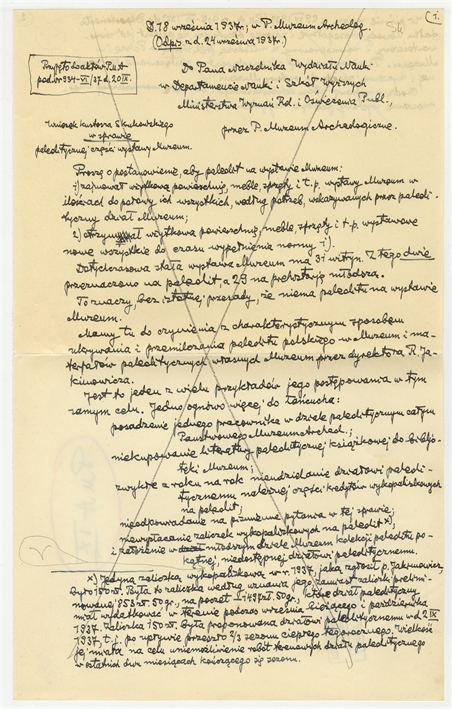 (1.
D. 18 września 1937r; w P. Muzeum Archeolog.
(Odpis z d. 24 września 1937r.)
Przyjęto do aktów P.M.A
pod nr 934-VI/37. d. 20 IX.
Do Pana Naczelnika Wydziału Nauki
w Departamencie Nauki i Szkół Wyższych
Ministerstwa Wyznań Rel. i Oświecenia Publ.
przez P. Muzeum Archeologiczne.
Wniosek kustosza Krukowskiego
w sprawie
paleolitycznej części wystawy Muzeum.
Proszę o postanowienie, aby paleolit na wystawie Muzeum:
1) zajmował użytkową powierzchnię, meble, sprzęty i t.p. wystawy Muzeum w
ilościach do połowy ich wszystkich, według potrzeb, wskazywanych przez paleoli-
tyczny dział Muzeum;
2) otrzymywał użytkową powierzchnię, meble, sprzęty i t.p. wystawowe
nowe wszystkie do czasu wypełnienia normy 1).
Dotychczasowa stała wystawa Muzeum ma 31 witryn. Z tego dwie
przeznaczono na paleolit, a 29 na prehistorję młodszą.
To znaczy, bez istotnej przesady, że niema paleolitu na wystawie
Muzeum.
Mamy tu do czynienia z charakterystycznym sposobem
ukrywania i przemilczania paleolitu polskiego w Muzeum i ma-
terjałów paleolitycznych własnych Muzeum przez dyrektora R. Ja-
kimowicza.
Jest to jeden z wielu przykładów jego postępowania w tym
samym celu. Jedno ogniwo więcej do łańcucha:
posadzenie jednego pracownika w dziale paleolitycznym całym
Państwowego Muzeum Archeol.;
niekupowanie literatury paleolitycznej książkowej do bibljo-
teki Muzeum;
zwykłe z roku na rok nieudzielanie działowi paleoli-
tycznemu należnej części kredytów wykopaliskowych
na paleolit;
nieodpowiadanie na piśmienne pytania w tej sprawie;
niewypłacanie zaliczek wykopaliskowych na paleolit x),
i założenie w młodszym dziale Muzeum kolekcji paleolitu po-
kątnej, niedostępnej działowi paleolitycznemu.
x) Jedyna zaliczka wykopaliskowa w r. 1937, jaką zgłosił p. Jakimowicz,
była 150 zł. Była to zaliczka według uznania jego zamiast zaliczki prelimi-
nowanej 853 zł. 50 gr., na poczet 1497 zł. 50 gr., które dział paleolityczny
miał wydatkować w terenie podczas września bieżącego i października
1937. Zaliczka 150 zł. była proponowana działowi paleolitycznemu w d. 2 IX
1937, t.j. po upływie przeszło 2/3 sezonu ciepłego tegorocznego. Wielkość
jej miała na celu uniemożliwienie robót terenowych działu paleolitycznego
w ostatnich dwu miesiącach kończącego się sezonu.